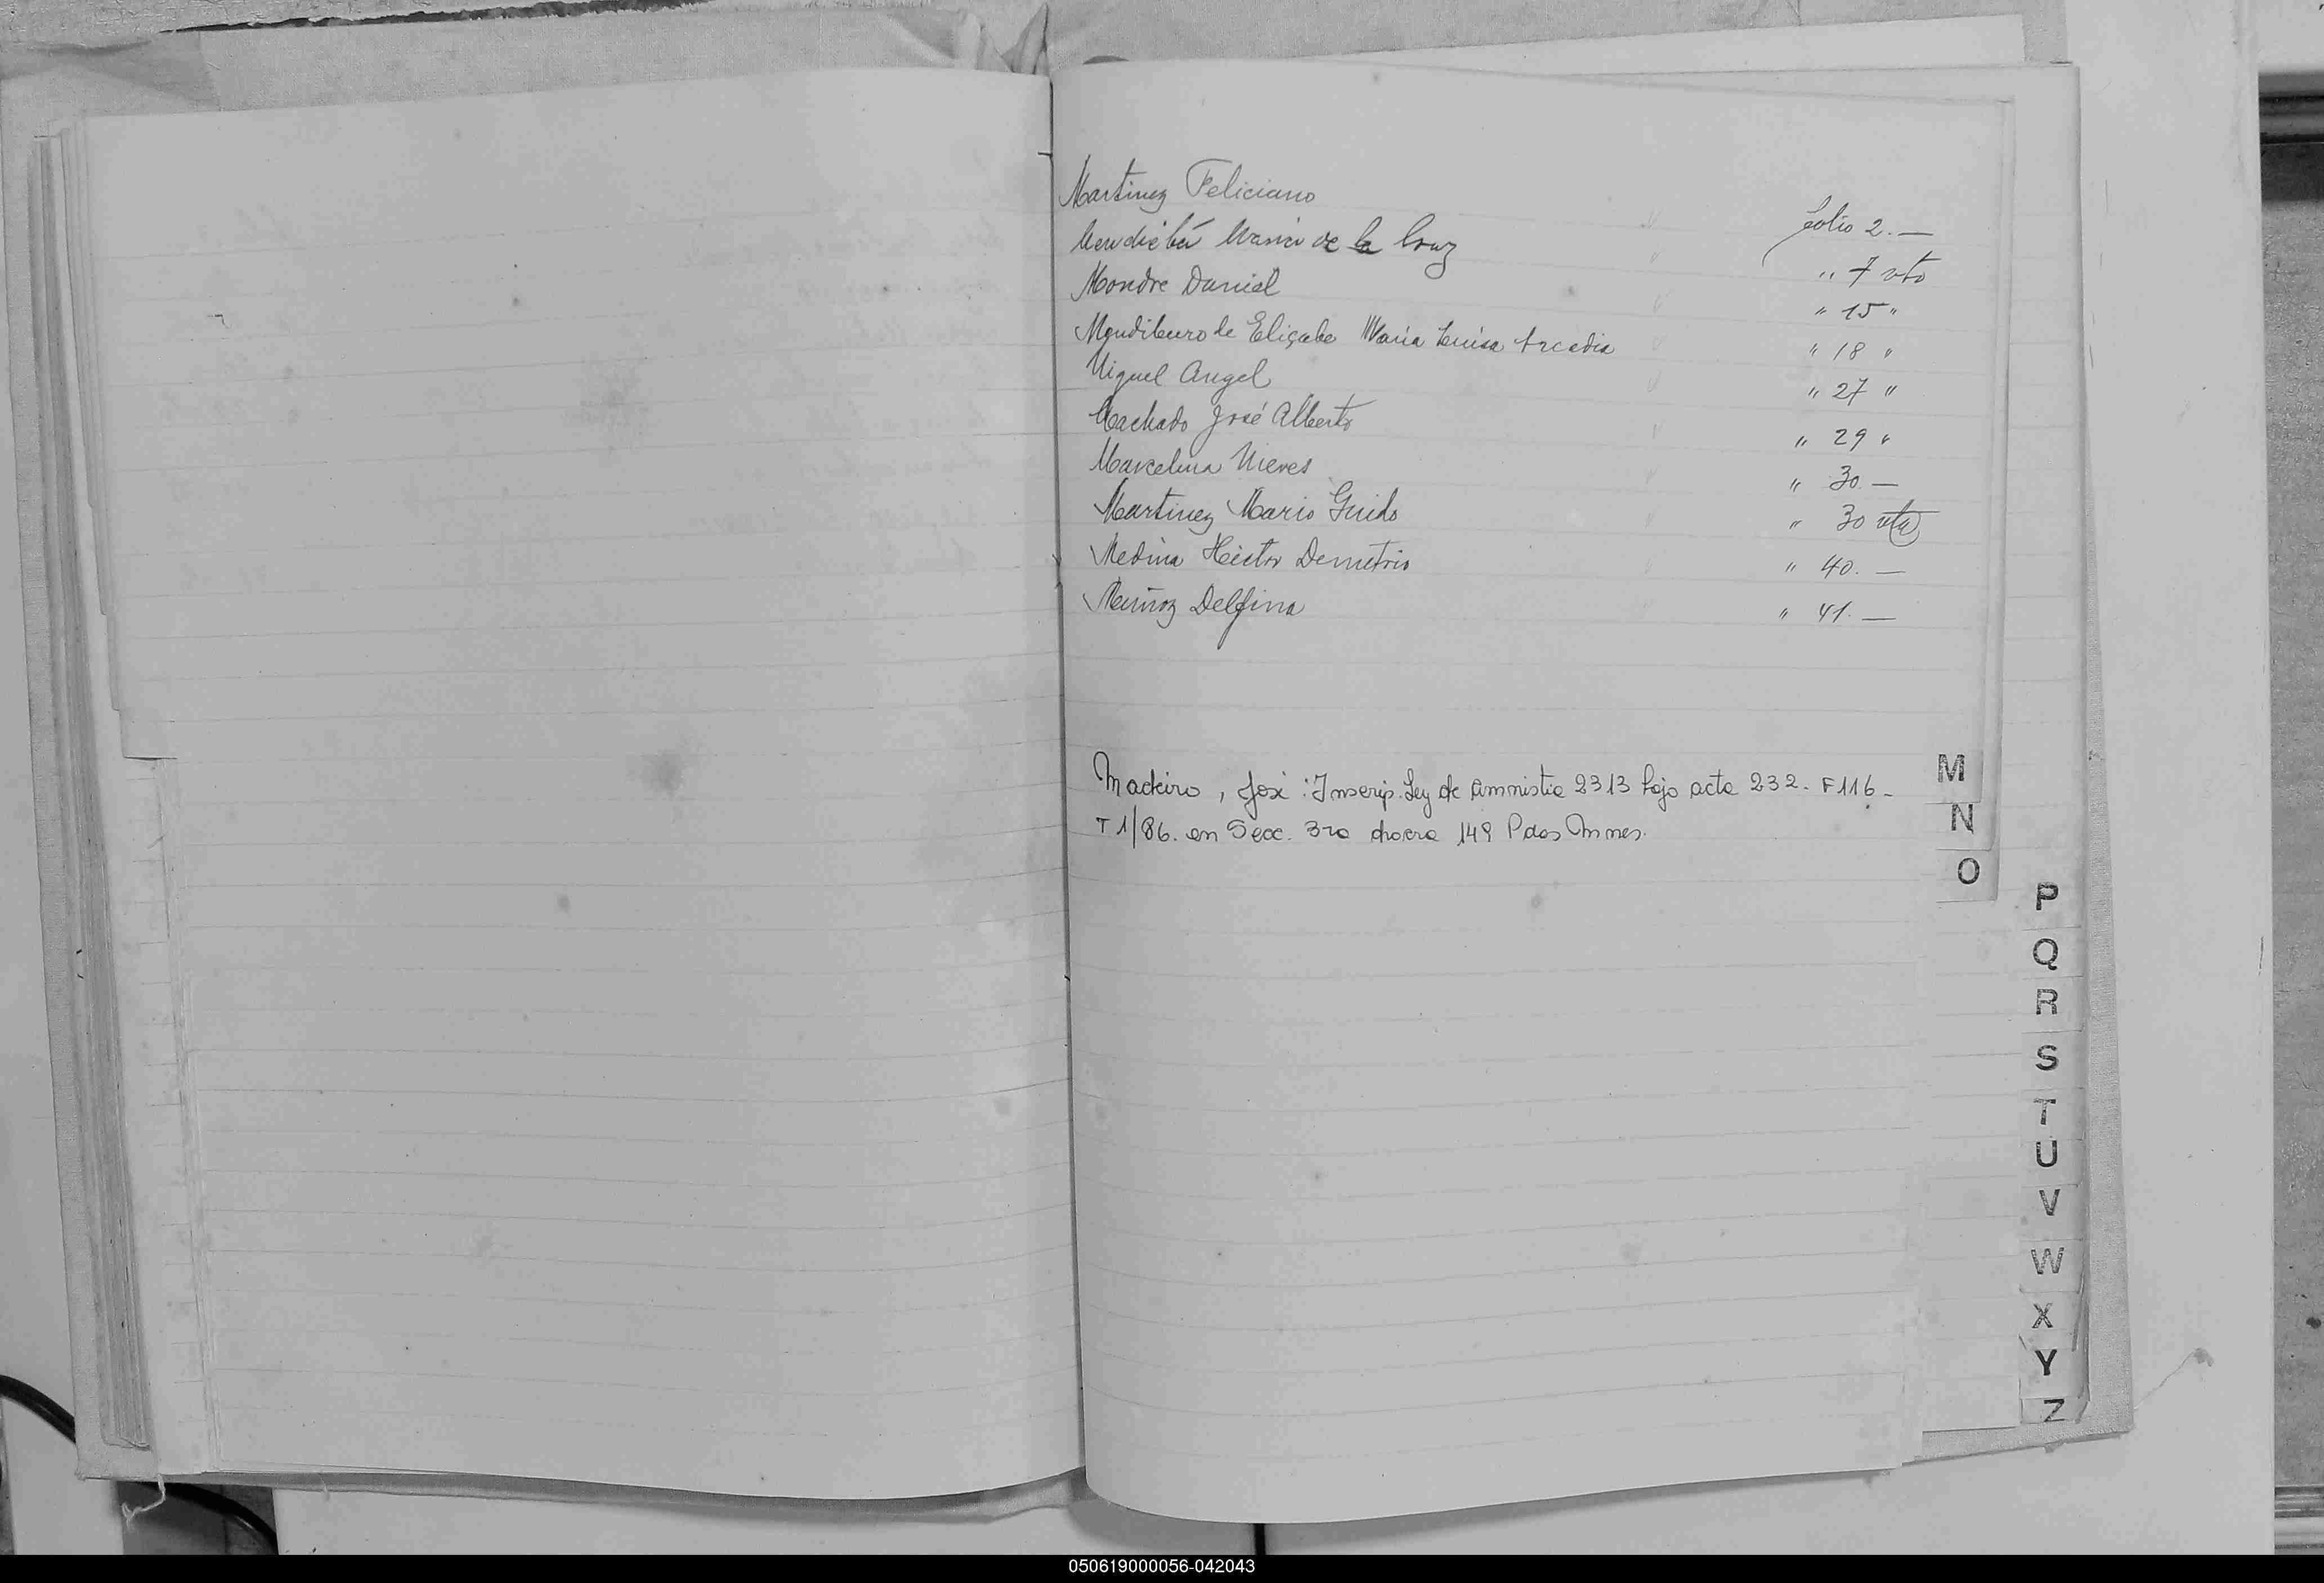 Martinez Feliciano folio 2.—
Mendicbú Maria de la Cruz " 7 vto
Mondre Daniel " 15 "
Mendiburo de Eliçabe Maria Luisa Arcadia " 18 "
Miguel Angel " 27 "
Machado José Alberto " 29 "
Marcelina Nieves " 30.—
Martinez Mario Guido " 30 vta
Medina Héctor Demetrio " 40.—
Muñoz Delfina " 41.—
Madeiro, José: Inscrip. Ley de amnistia 2313 bajo acta 232. F116-
T1/86. en Secc. 3ra 149 Pdas Mnes.
M
N
O
P
Q
R
S
T
U
V
W
X
Y
Z
050619000056-042043